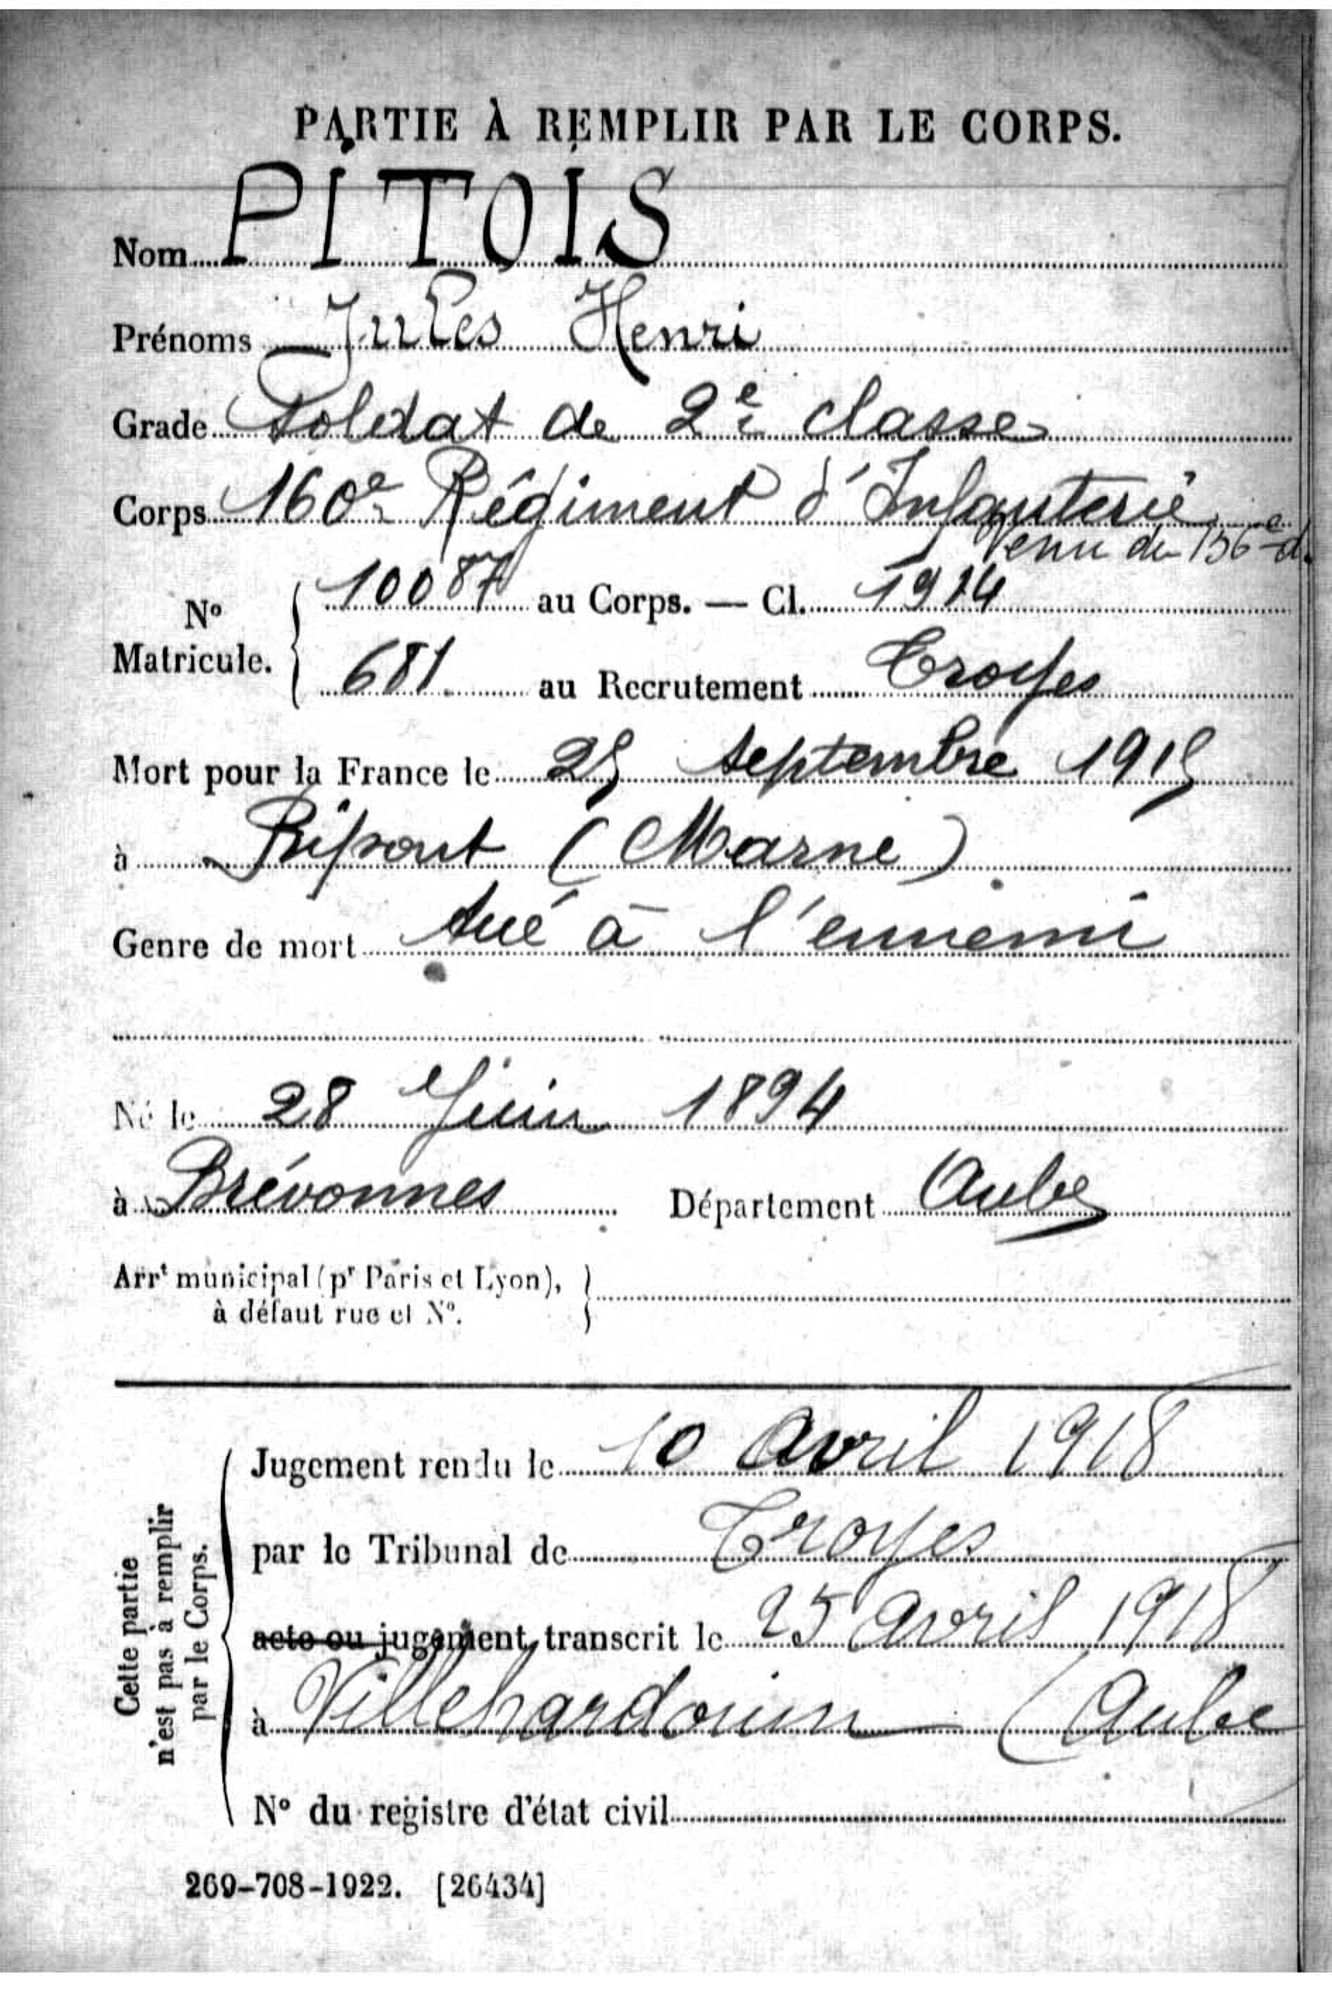 PARTIE À REMPLIR PAR LE CORPS.
Nom PITOIS
Prénoms Jules Henri
Grade Soldat de 2e classe
Corps 160e Régiment d'Infanterie
Venu du 156e d.
N° Matricule. 10087 au Corps. — Cl. 1914
681 au Recrutement Troyes
Mort pour la France le 25 septembre 1915
à Ripont (Marne)
Genre de mort tué à l'ennemi
Né le 28 Juin 1894
à Brévonnes Département Aube
Arrt municipal (pr Paris et Lyon),
à défaut rue et N°.
Cette partie
n'est pas à remplir
par le Corps.
Jugement rendu le 10 avril 1918
par le Tribunal de Troyes
acte ou jugement transcrit le 25 avril 1918
à Villehardouin (Aube
N° du registre d'état civil
269-708-1922. [26434]